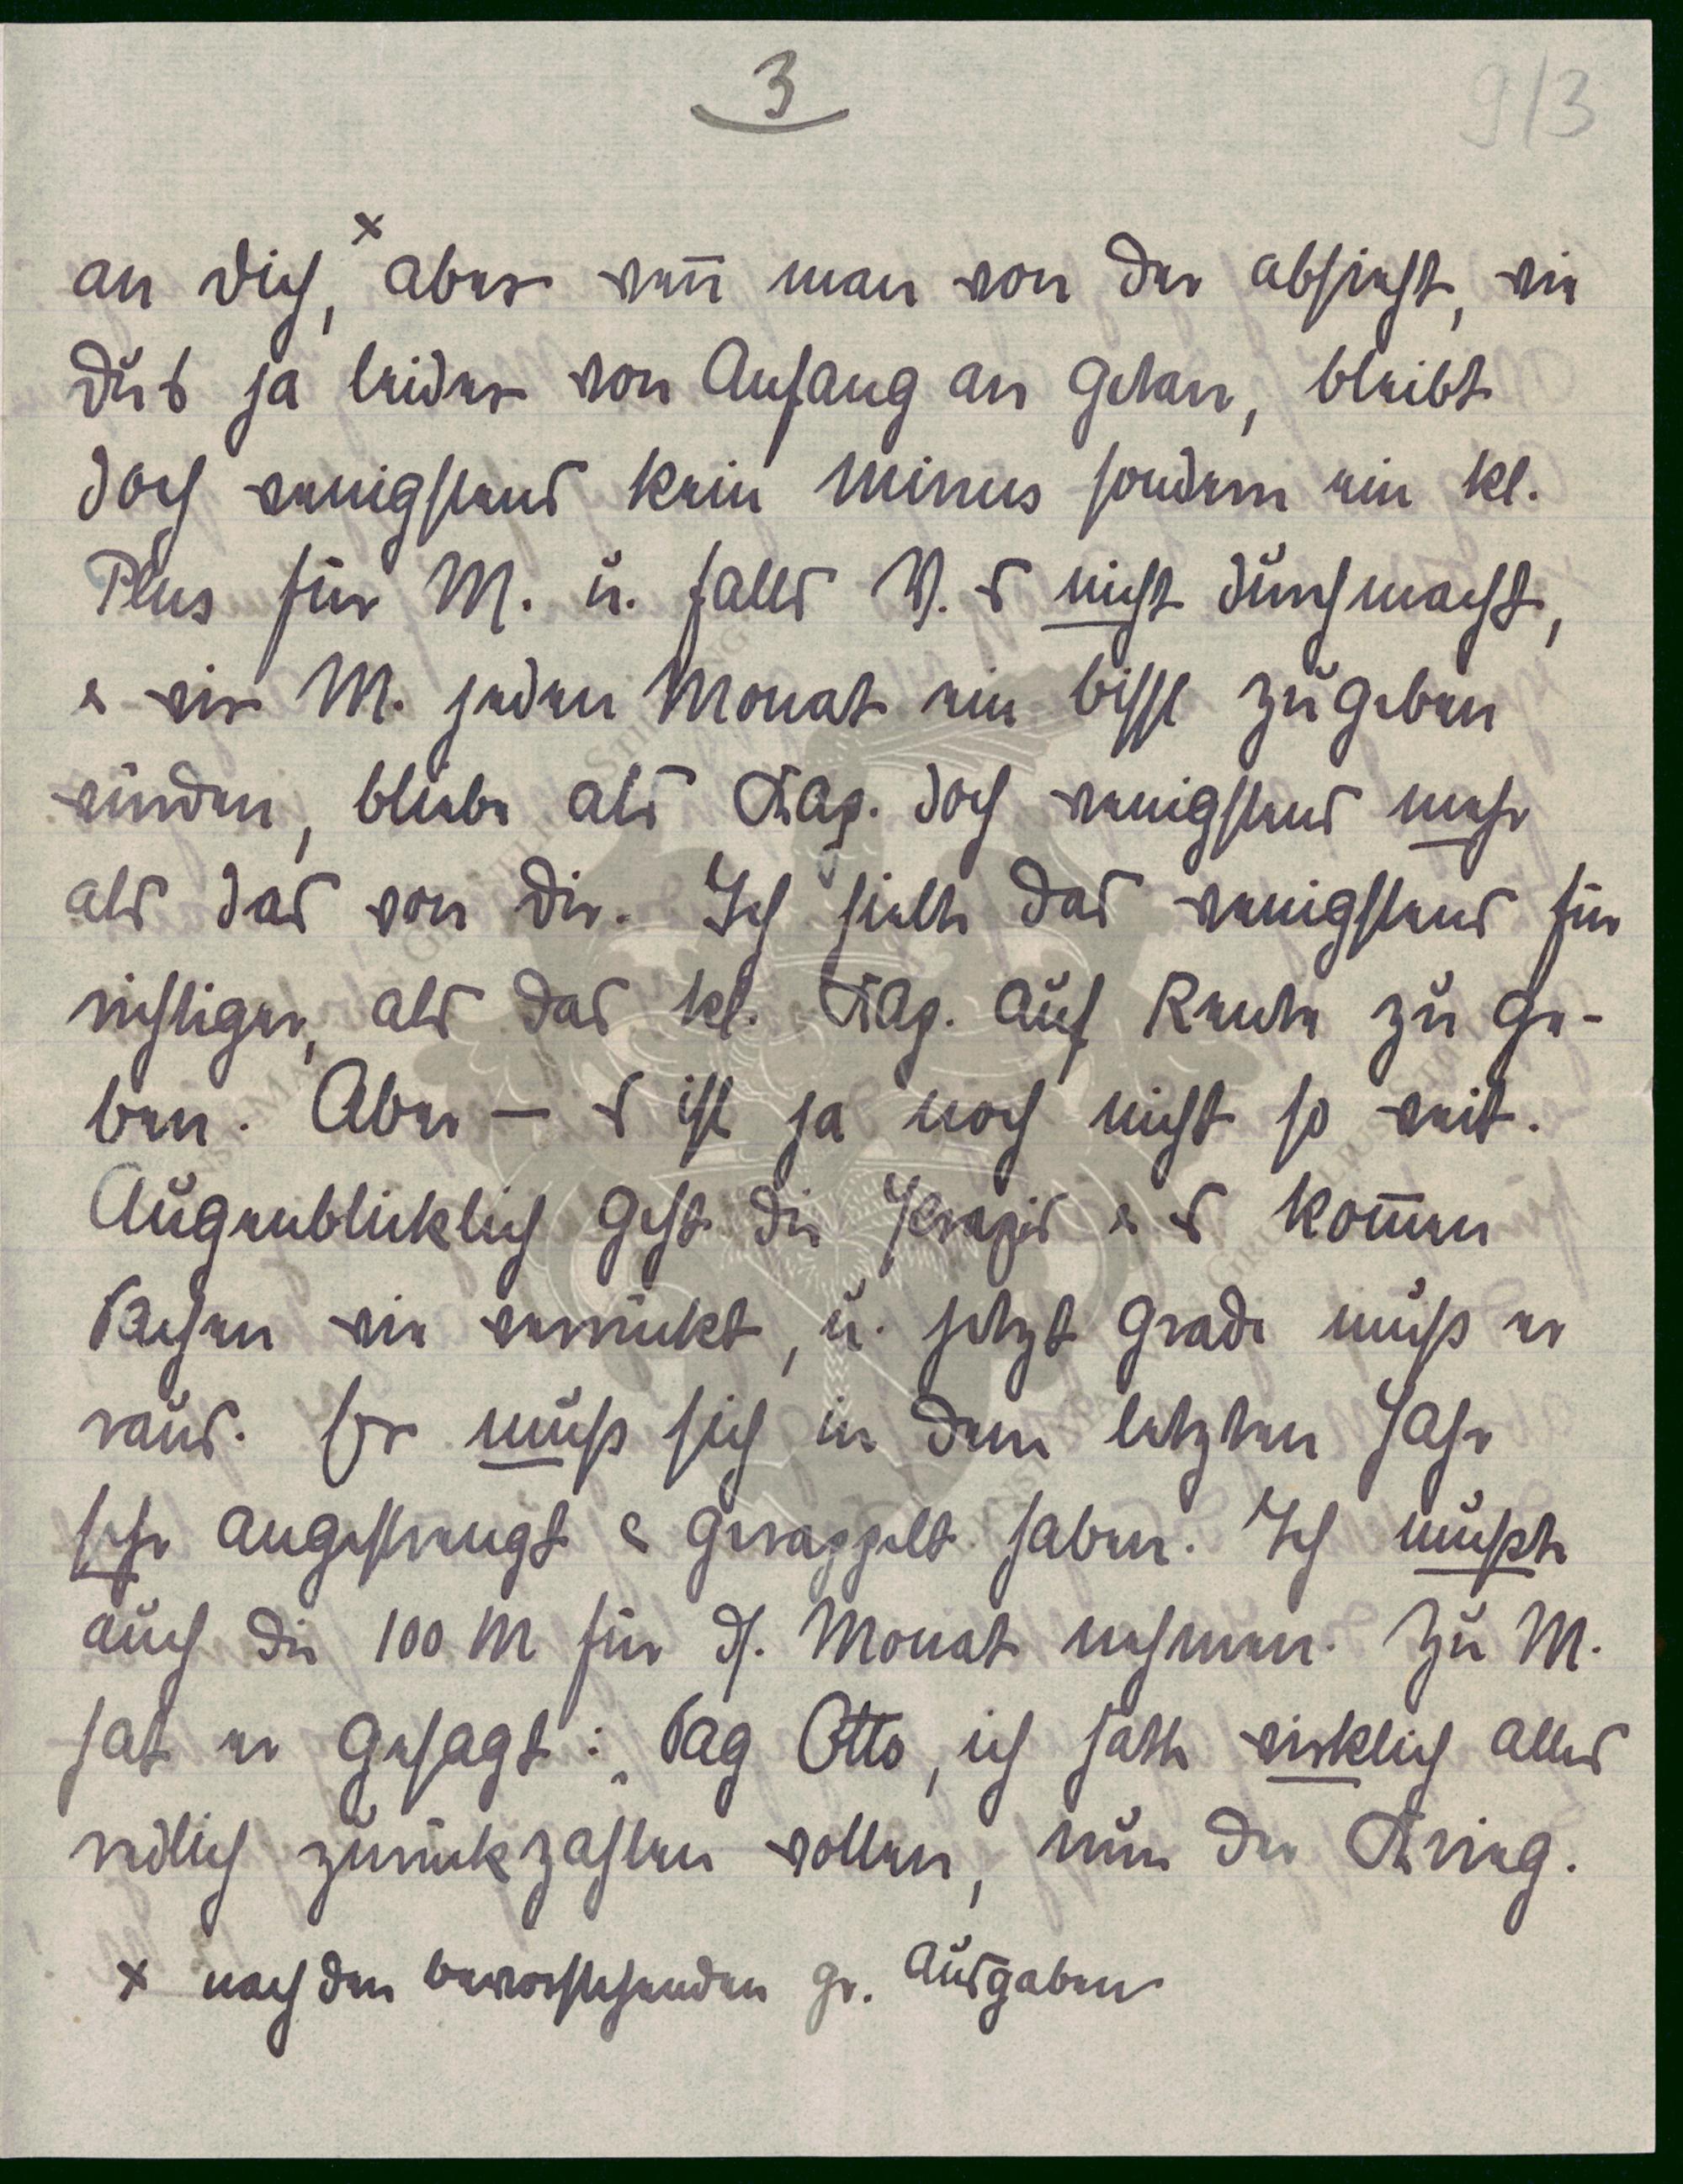 3
9/3
an Dich,ˣ aber weñ man von der absieht, wie
Du's ja leider von Anfang an getan, bleibt
doch wenigstens kein Minus sondern ein kl.
Plus für M. u. falls W. es nicht durchmacht,
& wir M. jeden Monat ein bissl zugeben
würden, bliebe als Kap. doch wenigstens mehr
als das von Dir. Ich hielte das wenigstens für
richtiger, als das kl. Kap. auf Rente zu ge-
ben. Aber – es ist ja noch nicht so weit.
Augenblicklich geht die & es kom̃en
Sachen wie verrückt, u. jetzt grade muß er
raus. Er muß sich in dem letzten Jahr
sehr angestrengt & gerappelt haben. Ich mußte
auch die 100 M für ds. Monat nehmen. Zu M.
hat er gesagt: „Sag Otto, ich hätte wirklich alles
redlich zurückzahlen wollen, nun der Krieg.
x nach den bevorstehenden gr. Ausgaben